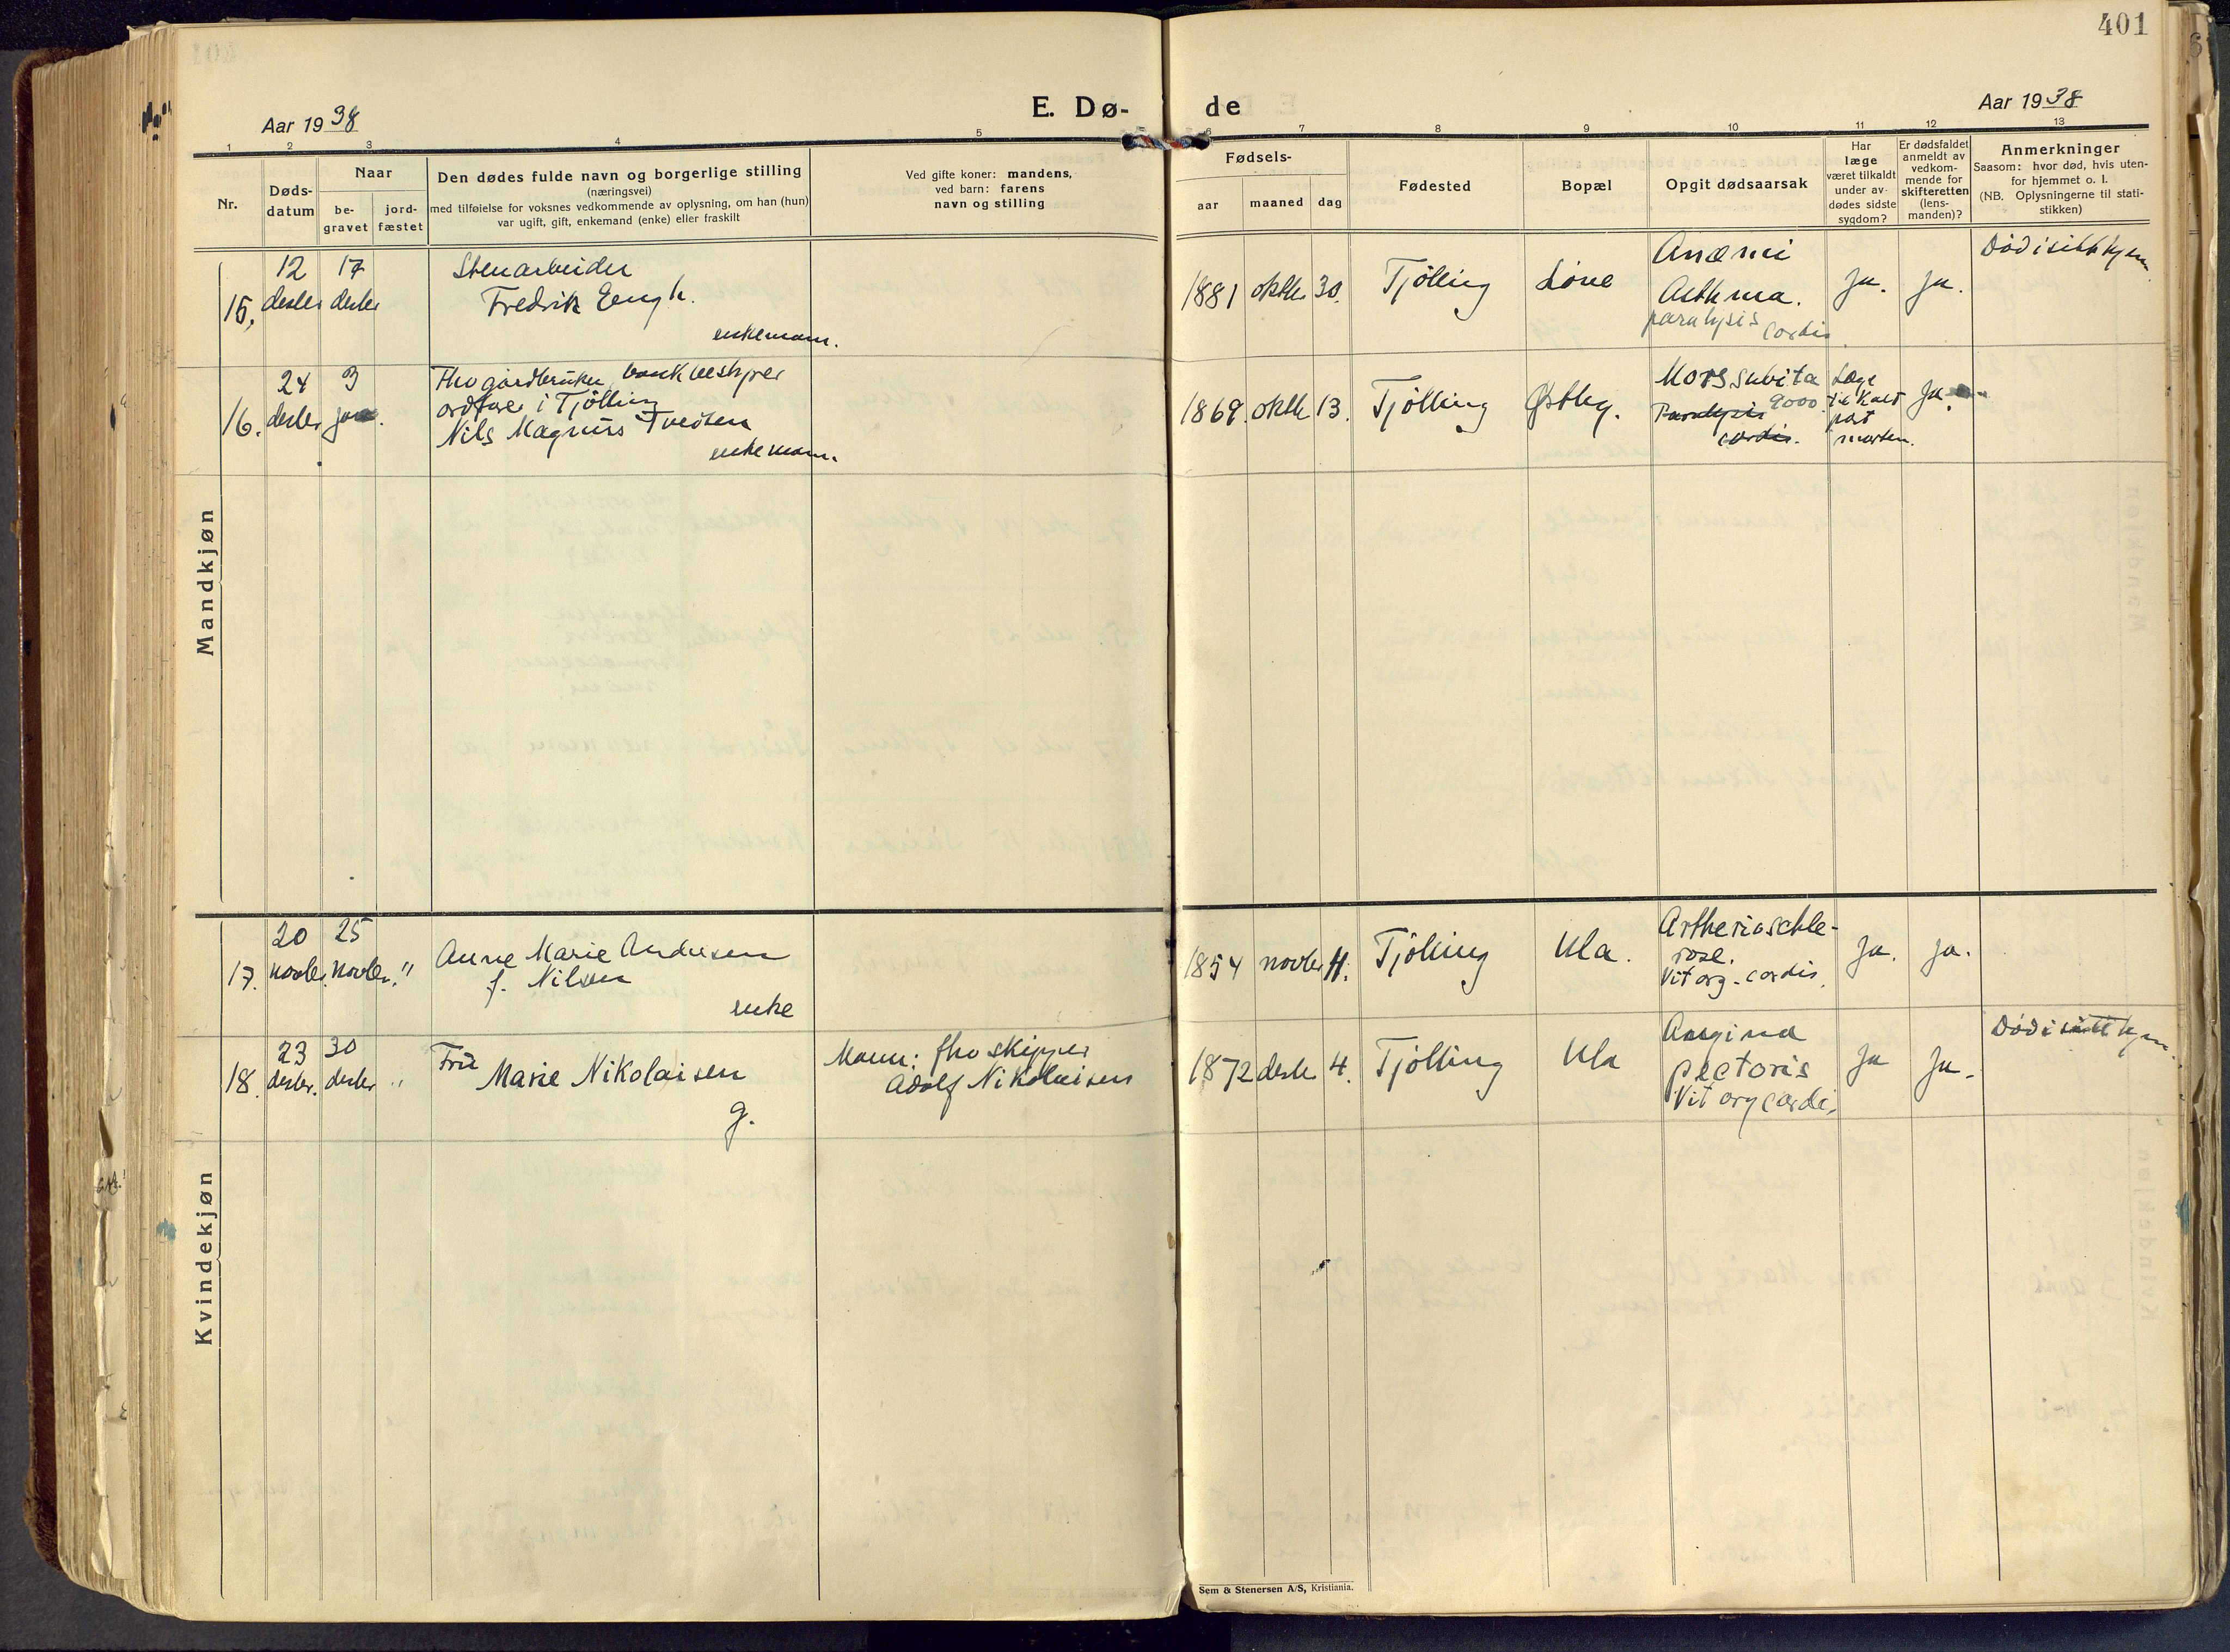 401
Aar 1938
E. Dø- de
Aar 1938
1 2 3 4 5 6 7 8 9 10 11 12 13
Nr.
Døds-
datum
Naar
be-
gravet
jord-
fæstet
Den dødes fulde navn og borgerlige stilling
(næringsvei)
med tilføielse for voksnes vedkommende av oplysning, om han (hun)
var ugift, gift, enkemand (enke) eller fraskilt
Ved gifte koner: mandens,
ved barn: farens
navn og stilling
Fødsels-
aar maaned dag
Fødested
Bopæl
Opgit dødsaarsak
Har
læge
været tilkaldt
under av-
dødes sidste
sygdom?
Er dødsfaldet
anmeldt av
vedkom-
mende for
skifteretten
(lens-
manden)?
Anmerkninger
Saasom: hvor død, hvis uten-
for hjemmet o. l.
(NB. Oplysningerne til stati-
stikken)
Mandkjøn
15.
12
desbr
17
desbr
Stenarbeider
Fredrik Eengh.
enkemann.
1881 oktbr 30.
Tjölling
Löve
Anæmi
Asthma.
paralysis
cordis.
Ja.
ja.
Död i sitt hjem.
16.
24
desbr
3
jan.
Fhv gårdbruker, bankbestyrer
ordfører i Tjölling
Nils Magnus Tvedten
enkemann.
1869. oktbr 13.
Tjölling
Østby.
Mors subita
9000.
Paralysis
cordis.
Læge
tilkalt
post
mortem.
Ja.
Kvindekjøn
17.
20
novbr.
25
novbr.
"
Anne Marie Andersen
f. Nilsen
enke
1854 novbr 11.
Tjölling
Ula.
Artherioschle-
rose.
Vit org. cordis.
Ja.
ja.
18.
23
desbr.
30
desbr
"
Fru
Marie Nikolaisen
g.
Mann: fhv skipper
Adolf Nikolaisen
1872 desbr 4.
Tjölling
Ula
Angina
pectoris
Vit org cordis.
Ja
Ja.
Död i sitt hjem.
Sem & Stenersen A/S, Kristiania.